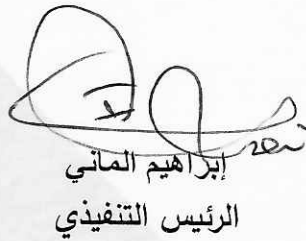 إبراهيم الماني
الرئيس التنفيذي